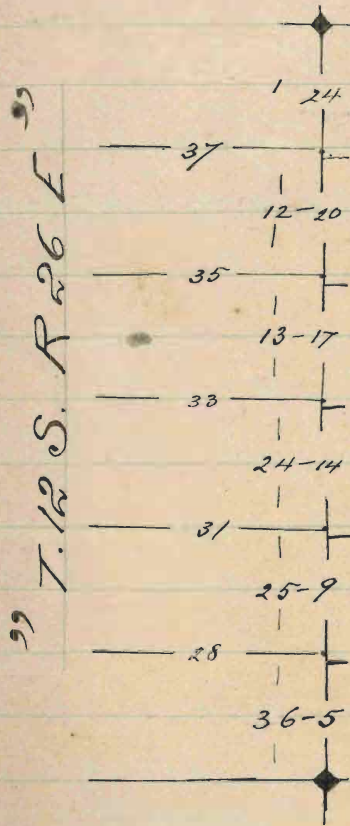 " T. 12 S. R 26 E "
1 24
37
12-20
35
13-17
33
24-14
31
25-9
28
36-5